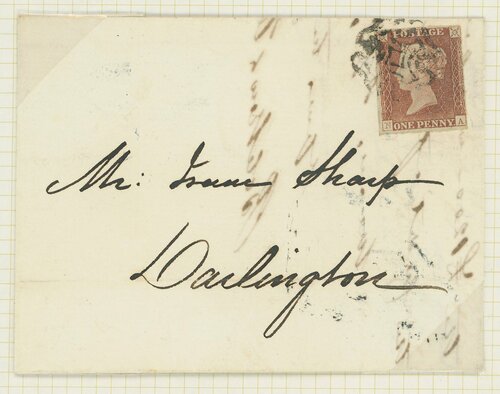 POSTAGE
N A
ONE PENNY
Mr: Isaac Sharp
Darlington